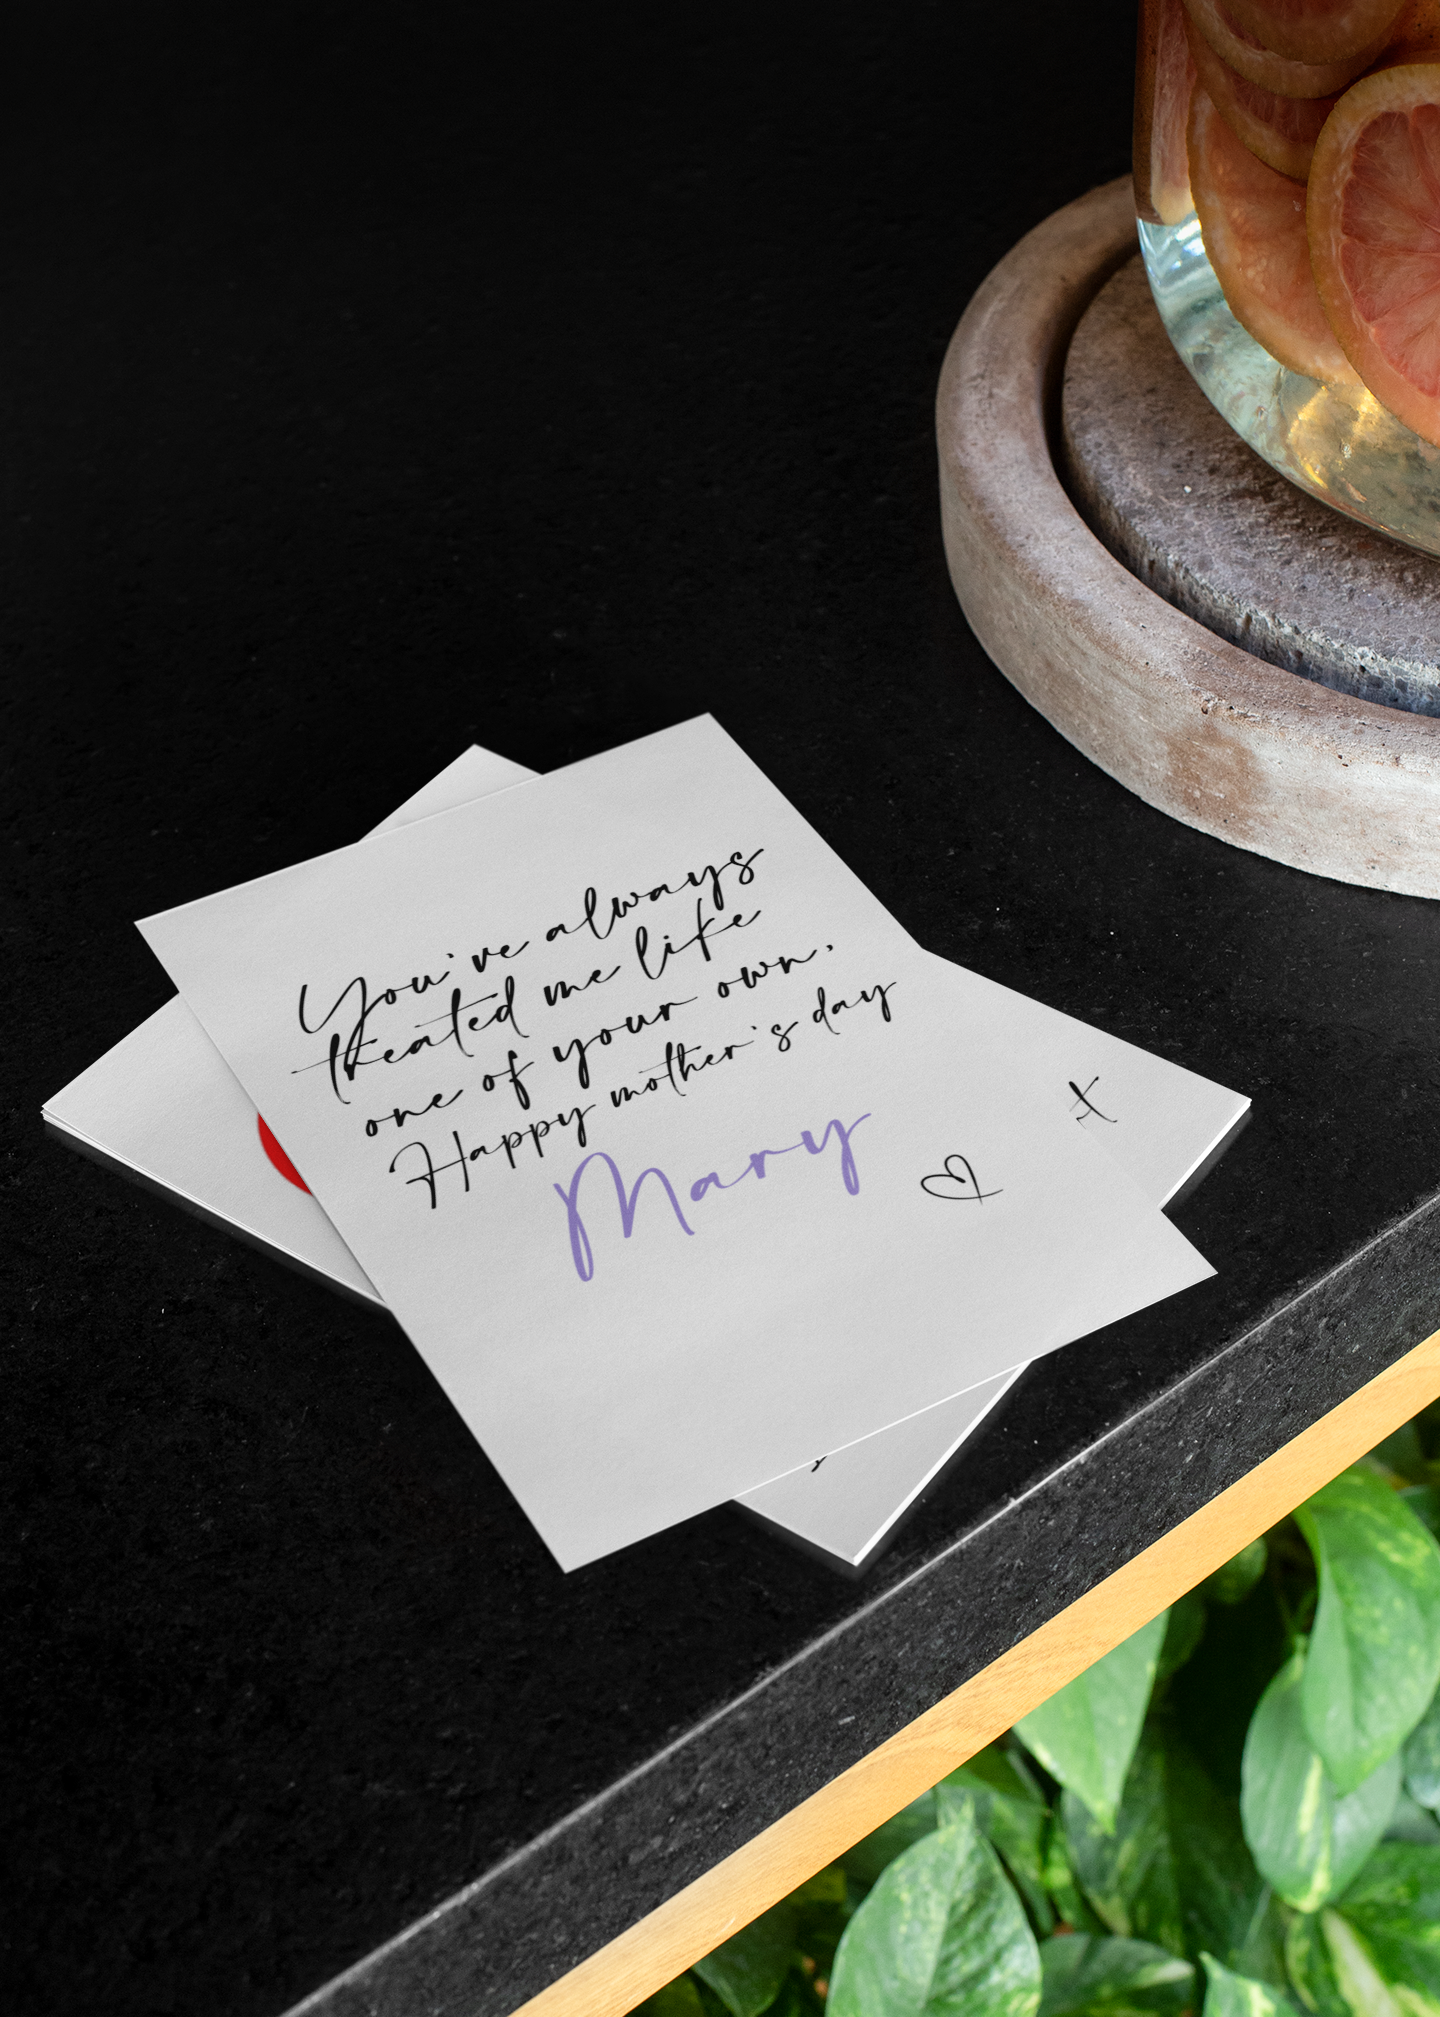 You've always
treated me like
one of your own.
Happy mother's day
Mary